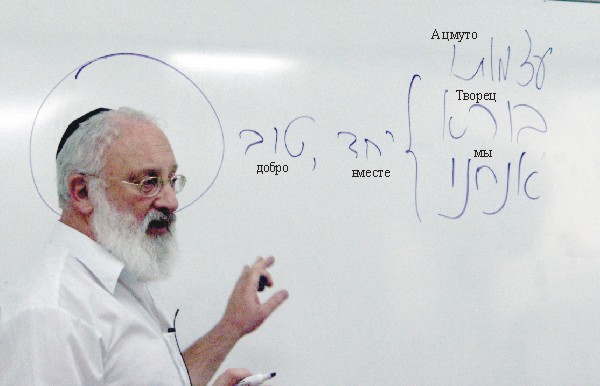 Ацмуто
עצמותו
Творец
בורא
יחד, טוב
добро
вместе
мы
אנחנו